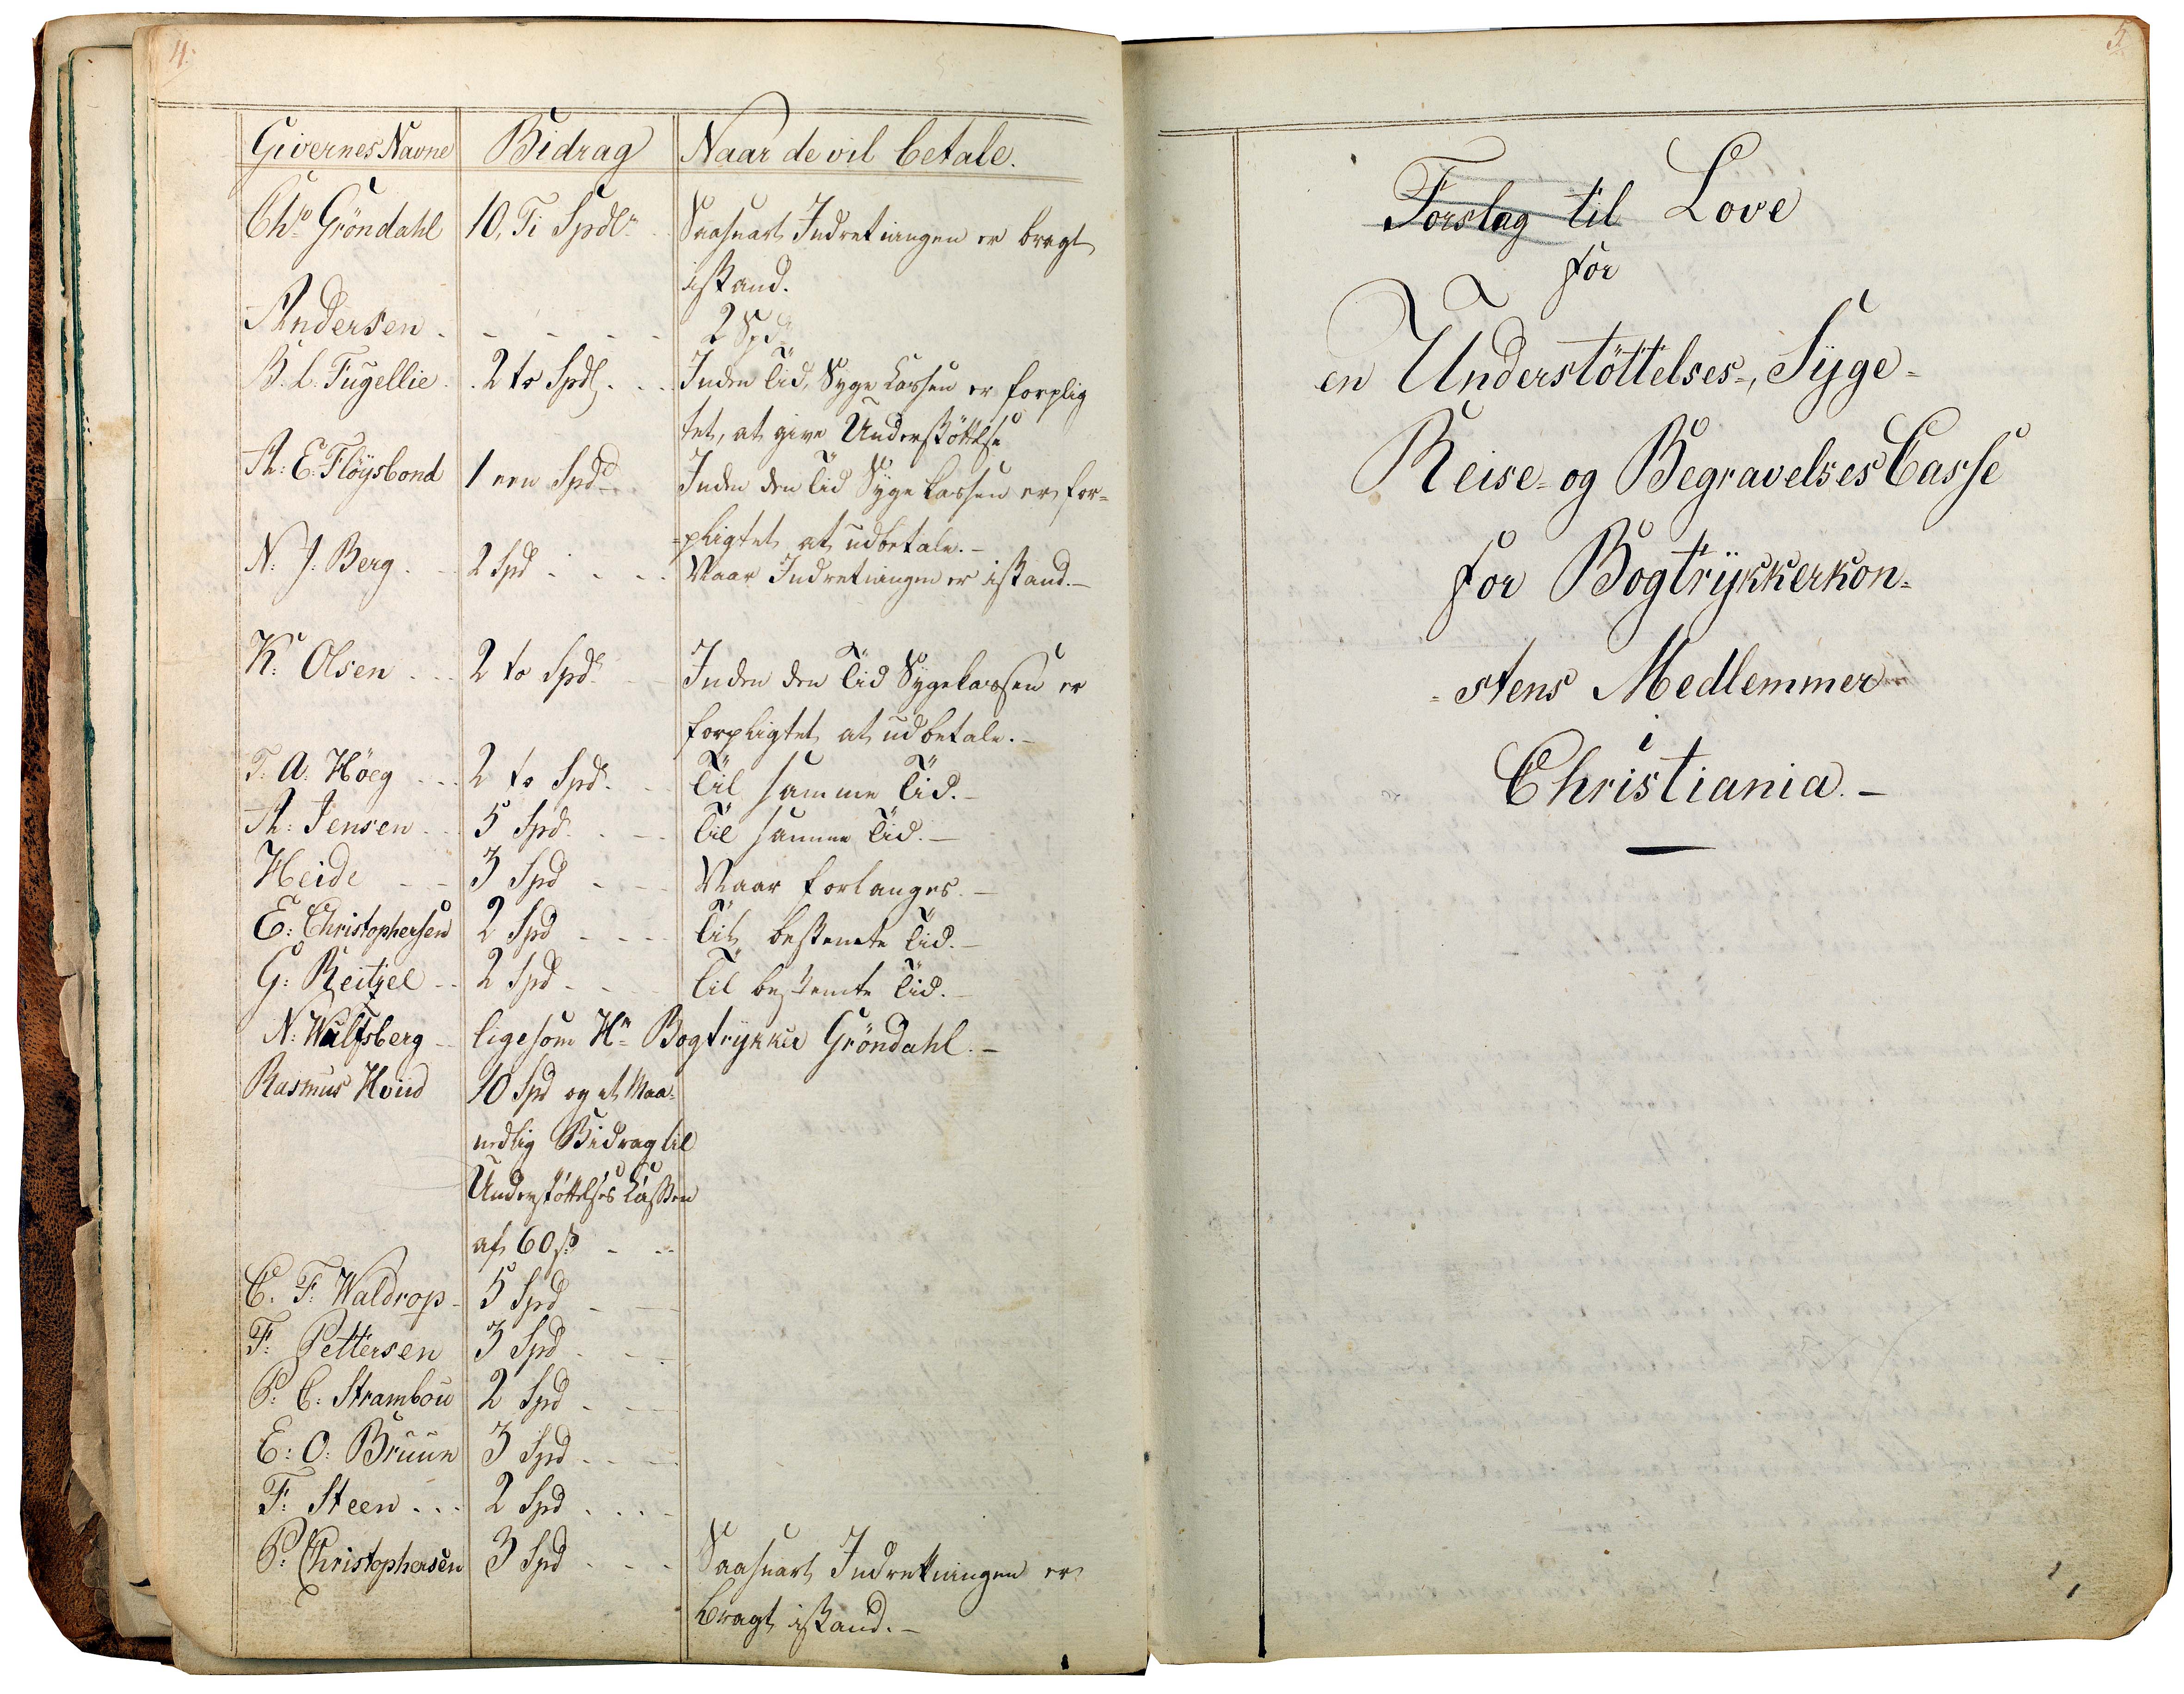 4.
Givernes Navne Bidrag Naar de vil betale.
Chr. Gröndahl 10, Ti Spdlr. Saasnart Indretningen er bragt
istand.
Andersen . - - - - 2 Spd
B. L. Fugellie . . 2 to Spdl. . . Inden Tid, Syge Cassen er forplig
tet, at give Understöttelse
A: E. Flöysbond 1 een Spd. Inden den Tid Sygekassen er for=
=pligtet at udbetale. –
N: J: Berg . - 2 Spd - . . . Naar Indretningen er istand. –
K: Olsen . . . 2 to Spd. Inden den Tid Sygekassen er
forpligtet at udbetale. –
T: A: Höeg . . . 2 to Spd. Til samme Tid. –
A: Jensen . . . 5 Spd. . - Til samme Tid. –
Heide - - 3 Spd - . - Naar forlanges. –
E: Christophersen 2 Spd - - - Til bestemte Tid. –
G: Reitzel - . 2 Spd - . Til bestemte Tid. –
N: Wulfsberg - ligesom Hr. Bogtrykker Gröndahl. –
Rasmus Hviid 10 Spd og et Maa=
nedlig Bidrag til
Understöttelses Cassen
af 60 ß - - -
C. F: Waldrop - 5 Spd - -
F: Pettersen 3 Spd - . -
P: C: Strambou 2 Spd - -
E: O: Bruun 3 Spd - . -
F: Steen . . . 2 Spd . . . -
P: Christophersen 3 Spd - - - Saasnart Indretningen er
bragt istand. –
5
Forslag til Love
for
en Understöttelses-, Syge-
Reise- og Begravelses Casse
for Bogtrykkerkon=
=stens Medlemmer
i
Christiania. –